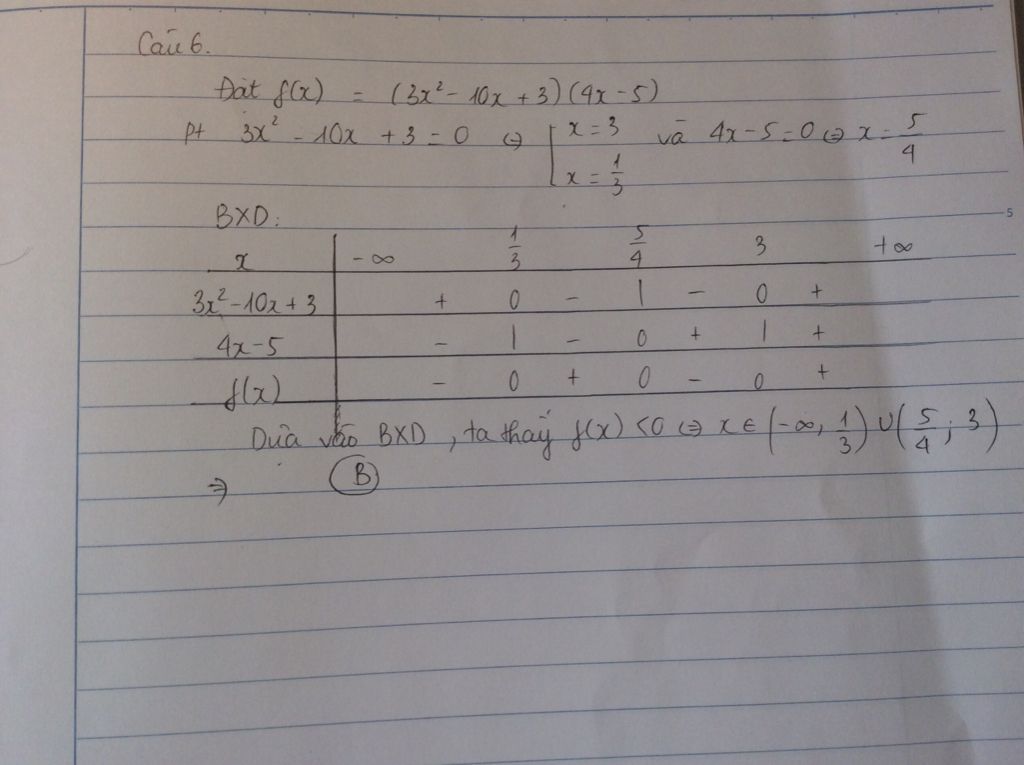 Câu 6.
Đặt f(x) = (3x² - 10x + 3)(4x - 5)
pt 3x² - 10x + 3 = 0 ⇔ [ x = 3 và 4x - 5 = 0 ⇔ x = 5/4
x = 1/3
BXD:
x -∞ 1/3 5/4 3 +∞
3x² - 10x + 3 + 0 - | - 0 +
4x - 5 - | - 0 + | +
f(x) - 0 + 0 - 0 +
Dựa vào BXD, ta thấy f(x) < 0 ⇔ x ∈ (-∞, 1/3) ∪ (5/4; 3)
⇒ B
5